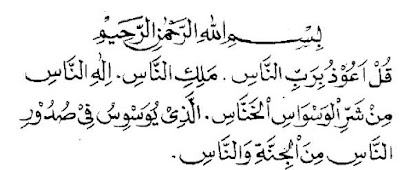 بِسْمِ اللهِ الرَّحْمٰنِ الرَّحِيْمِ
قُلْ اَعُوْذُ بِرَبِّ النَّاسِ . مَلِكِ النَّاسِ . اِلٰهِ النَّاسِ
مِنْ شَرِّ الْوَسْوَاسِ الْخَنَّاسِ . الَّذِيْ يُوَسْوِسُ فِيْ صُدُوْرِ
النَّاسِ مِنَ الْجِنَّةِ وَالنَّاسِ .